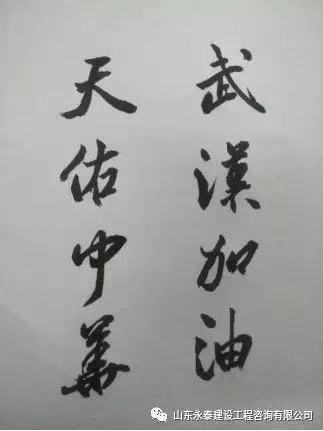 武漢加油
天佑中華
山东永泰建设工程咨询有限公司